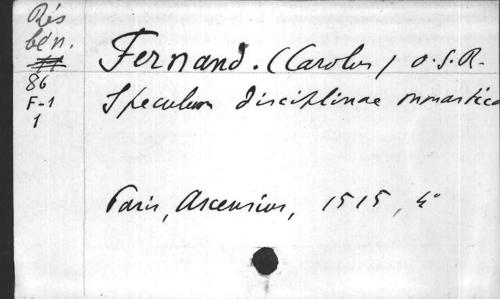 Rés
bén.
86
F-1
1
Fernand. (Carolus) O.S.B.
Speculum disciplinae monastica
Paris, Ascensius, 1515, 4°